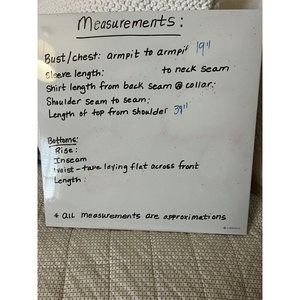 Measurements:
Bust/chest: armpit to armpit 19"
Sleeve length: to neck seam
Shirt length from back seam @ collar:
Shoulder seam to seam:
Length of top from shoulder 39"
Bottoms:
Rise:
Inseam
Waist - tape laying flat across front
Length:
* all measurements are approximations